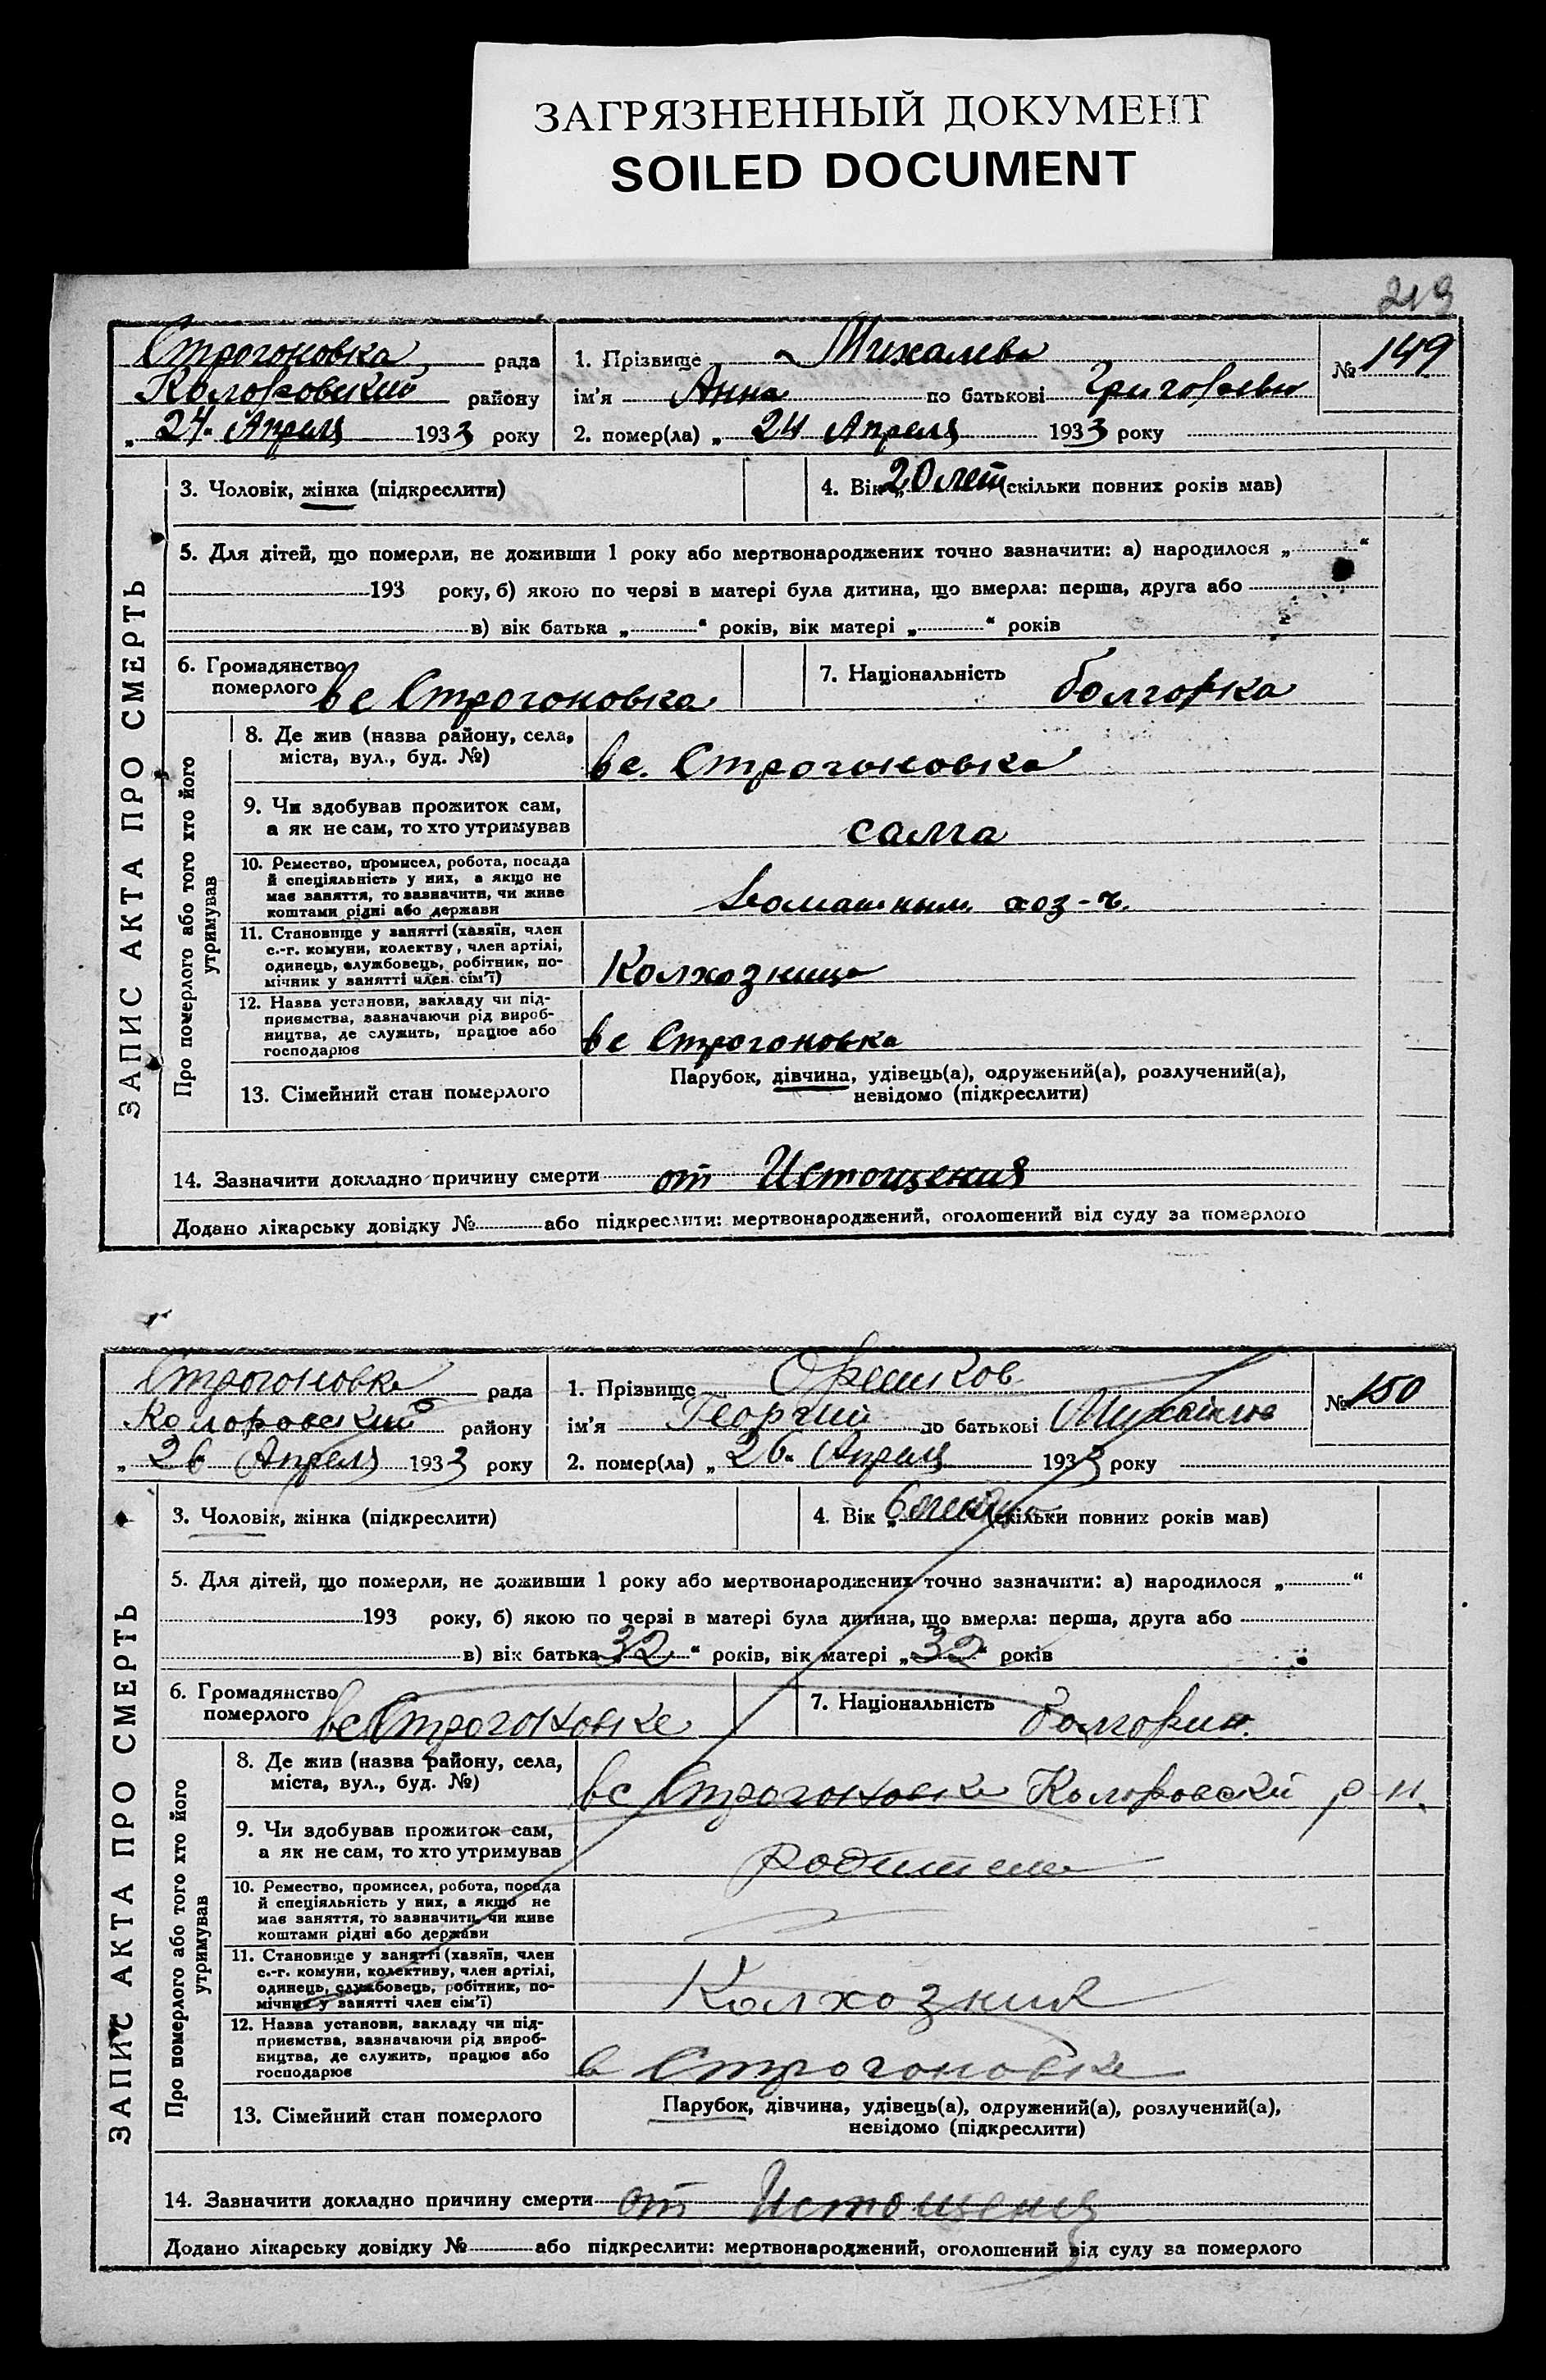 ЗАГРЯЗНЕННЫЙ ДОКУМЕНТ
SOILED DOCUMENT
213
Строгоновка рада
Коларовский району
„ 24 Апреля 1933 року
1. Прізвище Михалева
ім'я Анна по батькові Григорьевн
2. помер(ла) „ 24 Апреля 1933 року
№ 149
ЗАПИС АКТА ПРО СМЕРТЬ
3. Чоловік, жінка (підкреслити)
4. Вік „ 20 лет (скільки повних років мав)
5. Для дітей, що померли, не доживши 1 року або мертвонароджених точно зазначити: а) народилося „ “
193 року, б) якою по черзі в матері була дитина, що вмерла: перша, друга або
в) вік батька „ “ років, вік матері „ “ років
6. Громадянство
померлого вс Строгоновка
7. Національність болгорка
Про померлого або того хто його
утримував
8. Де жив (назва району, села,
міста, вул., буд. №)
вс. Строгоновка
9. Чи здобував прожиток сам,
а як не сам, то хто утримував
сама
10. Ремество, промисел, робота, посада
й спеціяльність у них, а якщо не
має заняття, то зазначити, чи живе
коштами рідні або держави
домашным хоз-ч.
11. Становище у занятті (хазяїн, член
с.-г. комуни, колектву, член артілі,
одинець, службовець, робітник, по-
мічник у занятті член сім'ї)
Колхозница
12. Назва установи, закладу чи під-
приємства, зазначаючи рід вироб-
ництва, де служить, працює або
господарює
вс Строгоновка
13. Сімейний стан померлого
Парубок, дівчина, удівець(а), одружений(а), розлучений(а),
невідомо (підкреслити)
14. Зазначити докладно причину смерти от Истощения
Додано лікарську довідку № або підкреслити: мертвонароджений, оголошений від суду за померлого
Строгоновка рада
Коларовский району
„ 26 Апреля 1933 року
1. Прізвище Орешков
ім'я Георгий по батькові
2. помер(ла) „ 26. Апреля 1933 року
№ 150
ЗАПИС АКТА ПРО СМЕРТЬ
3. Чоловік, жінка (підкреслити)
4. Вік „ 6 (скільки повних років мав)
5. Для дітей, що померли, не доживши 1 року або мертвонароджених точно зазначити: а) народилося „ “
193 року, б) якою по черзі в матері була дитина, що вмерла: перша, друга або
в) вік батька 32 “ років, вік матері „ 32 “ років
6. Громадянство
померлого вс Строгоновке
7. Національність болгорин.
Про померлого або того хто його
утримував
8. Де жив (назва району, села,
міста, вул., буд. №)
вс Строгоновке Коларовский р-н.
9. Чи здобував прожиток сам,
а як не сам, то хто утримував
родители
10. Ремество, промисел, робота, посада
й спеціяльність у них, а якщо не
має заняття, то зазначити, чи живе
коштами рідні або держави
11. Становище у занятті (хазяїн, член
с.-г. комуни, колективу, член артілі,
одинець, службовець, робітник, по-
мічник у занятті член сім'ї)
Колхозник
12. Назва установи, закладу чи під-
приємства, зазначаючи рід вироб-
ництва, де служить, працює або
господарює
в Строгоновке
13. Сімейний стан померлого
Парубок, дівчина, удівець(а), одружений(а), розлучений(а),
невідомо (підкреслити)
14. Зазначити докладно причину смерти от Истощения
Додано лікарську довідку № або підкреслити: мертвонароджений, оголошений від суду за померлого